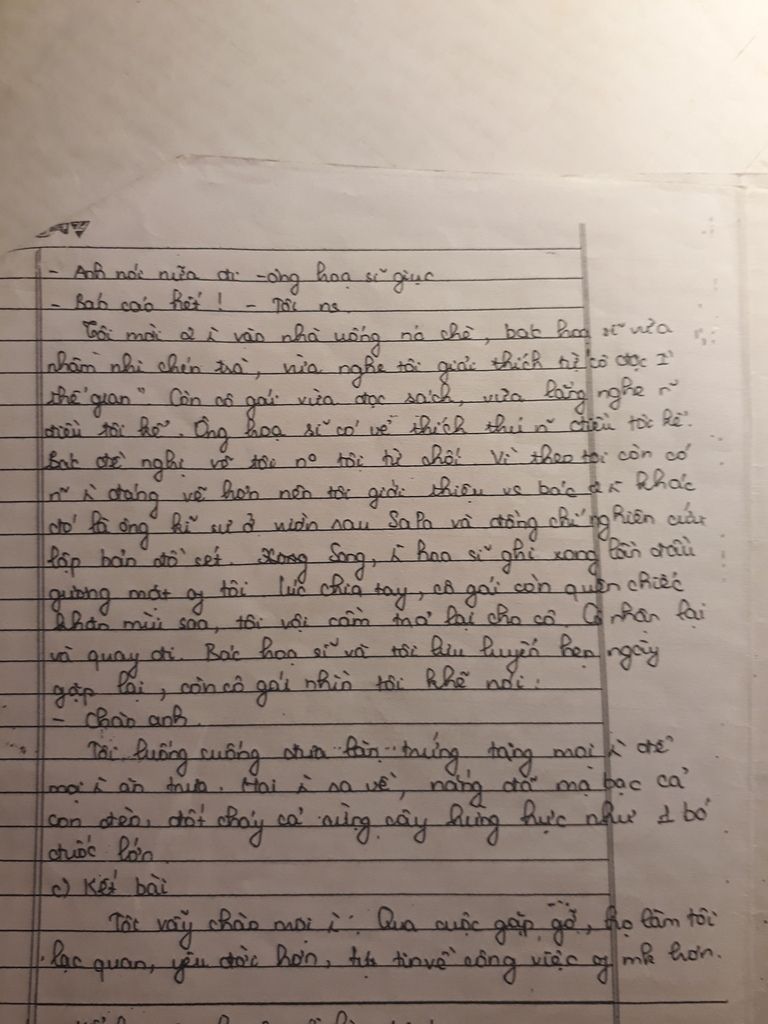 - Anh nói nữa đi - ông hoạ sĩ giục
- Báo cáo hết! - Tôi ns
Tôi mời 2 ì vào nhà uống nc chè, bác hoạ sĩ vừa
nhâm nhi chén trà, vừa nghe tôi giải thích từ cô độc I
thế gian". Còn cô gái vừa đọc sách, vừa lắng nghe n~
điều tôi kể. Ông hoạ sĩ có vẻ thích thú n~ điều tôi kể.
Bác đề nghị vẽ tôi nº tôi từ chối. Vì theo tôi còn có
n~ ì đáng vẽ hơn nên tôi giới thiệu vs bác 2 ì khác
đó là ông kĩ sư ở vườn rau SaPa và đồng chí nghiên cứu
lập bản đồ sét. Xong, ì hoạ sĩ ghi xong lần đầu
gương mặt of tôi lúc chia tay, cô gái còn quên chiếc
khăn mùi soa, tôi vội cầm trả lại cho cô. Cô nhận lại
và quay đi. Bác hoạ sĩ và tôi lưu luyến hẹn ngày
gặp lại, còn cô gái nhìn tôi khẽ nói:
- Chào anh.
Tôi luống cuống đưa làn trứng tặng mọi ì để
mọi ì ăn trưa. Hai ì ra về, nắng đã mạ bạc cả
con đèo, đốt cháy cả rừng cây hừng hực như 1 bó
đuốc lớn
c) Kết bài
Tôi vẫy chào mọi ì. Qua cuộc gặp gỡ, họ làm tôi
lạc quan, yêu đời hơn, tự tin về công việc of mk hơn.